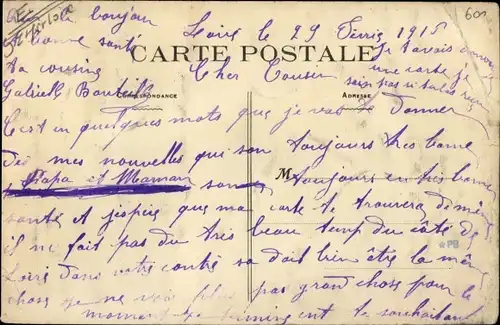 Loiré le 29 Février 1915
CARTE POSTALE
CORRESPONDANCE
ADRESSE
Cher Cousin
C'est en quelques mots que je vais donner
De mes nouvelles qui son toujours très bonne
Papa et Maman sont toujours en très bonne
M
santé et j'espère que ma carte te trouvera de même
il ne fait pas du très beau temp du côté de
Loiré dans votre contré sa doit bien être la même
chose je ne vois plus pas grand chose pour le
moment je termine en te souhaitant
le bonjour
bonne santé
ta cousine
Gabriell
je t'avais envoyé
une carte je
sais pas si tu l'as reçu
*PB
600